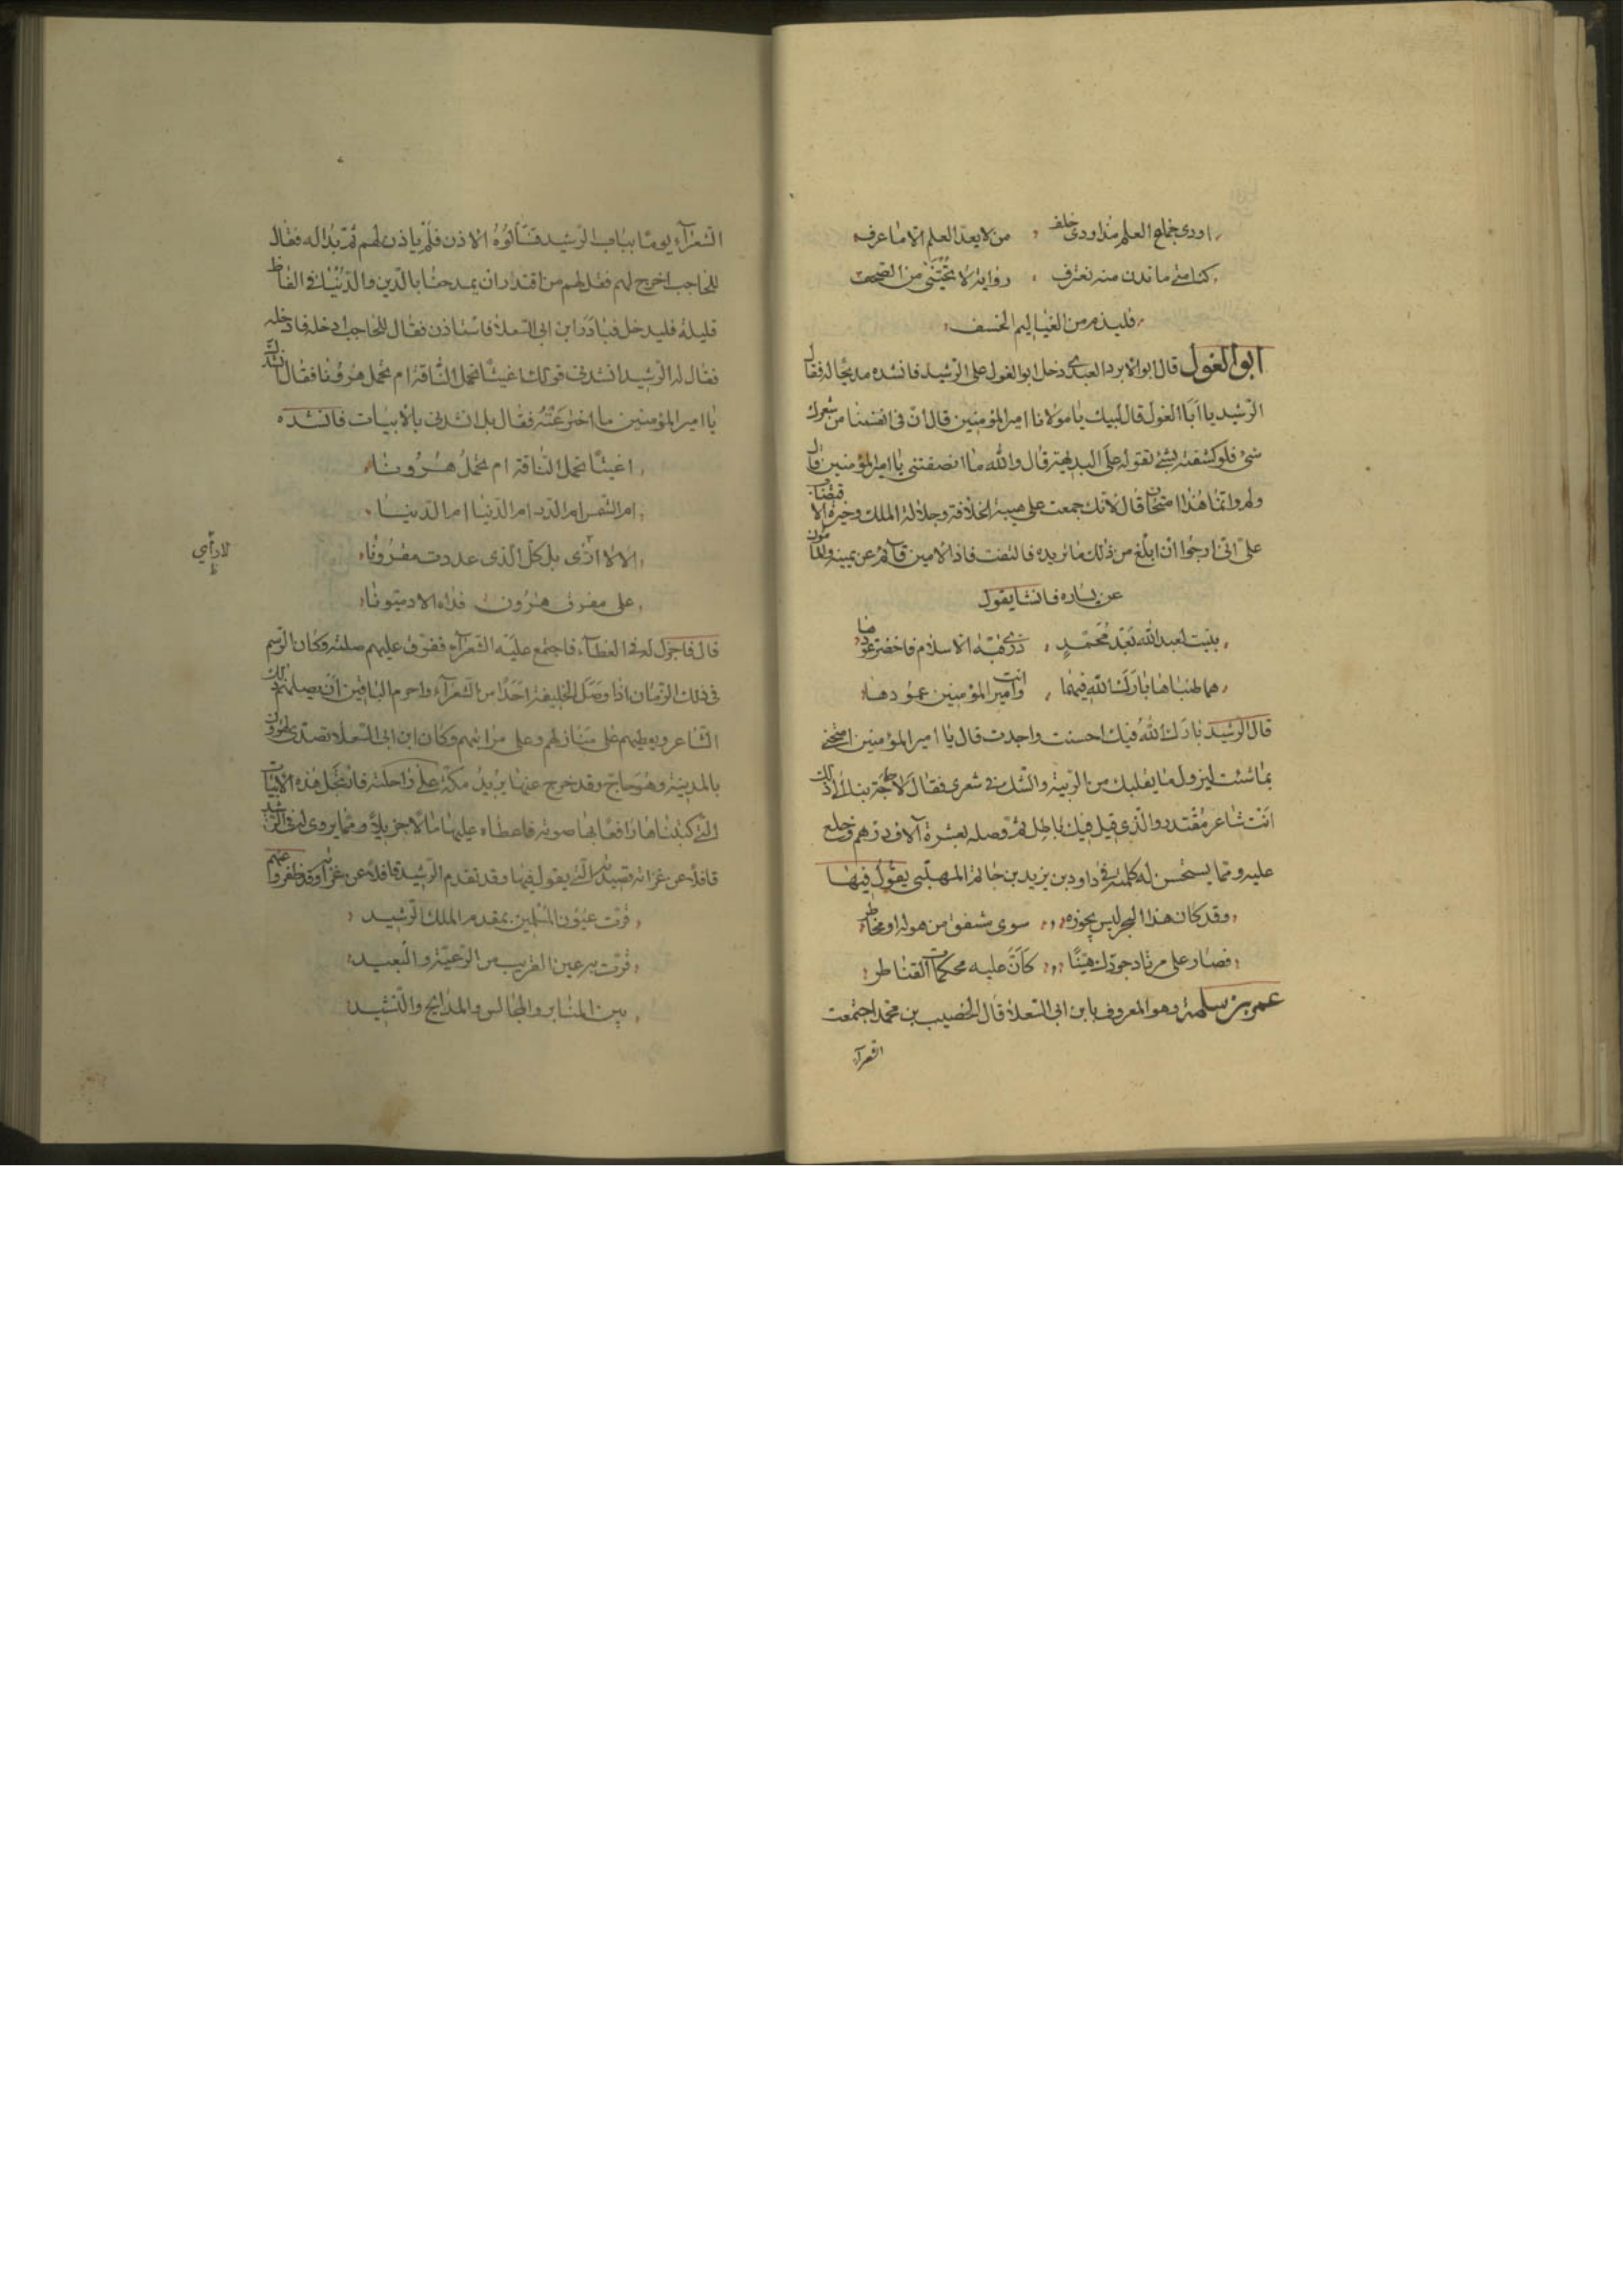 اودى جماع العلم مذ اودى خلف ، من لا يعد العلم الا ما عرف
كنا متى ما ندن منه نغترف ، رواية لا تجتنى من الصحف
قليذم من العياليم الخسف
ابو الغول قال ابو الابرد العبدي دخل ابو الغول على الرشيد فانشده مديحا له فقال
الرشيد يا ابا الغول قال لبيك يا مولانا امير المؤمنين قال ان فى انفسنا من شعرك
شئ فلو كشفته بشئ تقوله على البديهة قال والله ما انصفتنى يا امير المؤمنين قال
ولم وانما هذا امتحان قال لانك جمعت على هيبة الخلافة وجلالة الملك وحيرة الاقتضاب
على انى ارجوا ان ابلغ من ذلك ما تريده فالتفت فاذا الامين قائم عن يمينه والمأمون
عن يساره فانشا يقول
بنيت لعبد الله بعد محمد ، ذرى قبة الاسلام فاخضر عودها
هما طنباها بارك الله فيهما ، وانت امير المؤمنين عمودها
قال الرشيد بارك الله فيك احسنت واجدت قال يا امير المؤمنين امتحنى
بما شئت ليزول ما بقلبك من الريبة والشك فى شعرى فقال لا حاجة بنا الى ذلك
انت شاعر مقتدر والذى قيل فيك باطل ثم وصله بعشرة آلاف درهم وخلع
عليه ومما يستحسن له كلمته فى داود بن يزيد بن حاتم المهلبى يقول فيها
وقد كان هذا البحر ليس يجوزه ، سوى مشفق من هوله او مخاطر
فصار على مرتاد جودك هينا ، كأن عليه محكمات القناطر
عمر بن سلمة وهو المعروف بابن ابى السعلاة قال الخصيب بن محمد اجتمعت
الشعرآء
الشعرآء يوما بباب الرشيد فسألوه الاذن فلم ياذن لهم ثم بدا له فقال
للحاجب اخرج لهم فقل لهم من اقتدر ان يمدحنا بالدين والدنيا فى الفاظ
قليلة فليدخل فبادر ابن ابى السعلاة فاستاذن فقال للحاجب ادخله فادخله
فقال له الرشيد انشدنى قولك اغيثا تحمل الناقة ام تحمل هرونا فقال انشدك
يا امير المؤمنين ما اخترعته فقال بل انشدنى بالابيات فانشده
اغيثا تحمل الناقة ام تحمل هرونا
ام الشمس ام البدر ام الدنيا ام الدينا
الا لا اذى بل كل الذى عددت مقرونا
لا ارأي
ظ
على مفرق هرون فداه الادميونا
قال فاجزل له فى العطآء فاجتمع عليه الشعرآء ففرق عليهم صلته وكان الرسم
فى ذلك الزمان اذا وصل الخليفة احدا من الشعرآء واحرم الباقين ان يصلهم ذلك
الشاعر ويعطيهم على منازلهم وعلى مراتبهم وكان ابن ابى السعلاة تصدى لهرون
بالمدينة وهو حاج وقد خرج عنها يريد مكة على راحلته فارتجل هذه الابيات
التى كتبناها رافعا بها صوته فاعطاه عليها مالا جزيلا ومما يروى له فى الرشيد
قافلا عن غزاته قصيدته التى يقول فيها وقد تقدم الرشيد قافلا عن غزاته وقد ظفر وغنم
قرت عيون المسلمين بمقدم الملك الرشيد
قرت به عين القريب من الرعية والبعيد
بين المنابر والمجالس والمدائح والنشيد